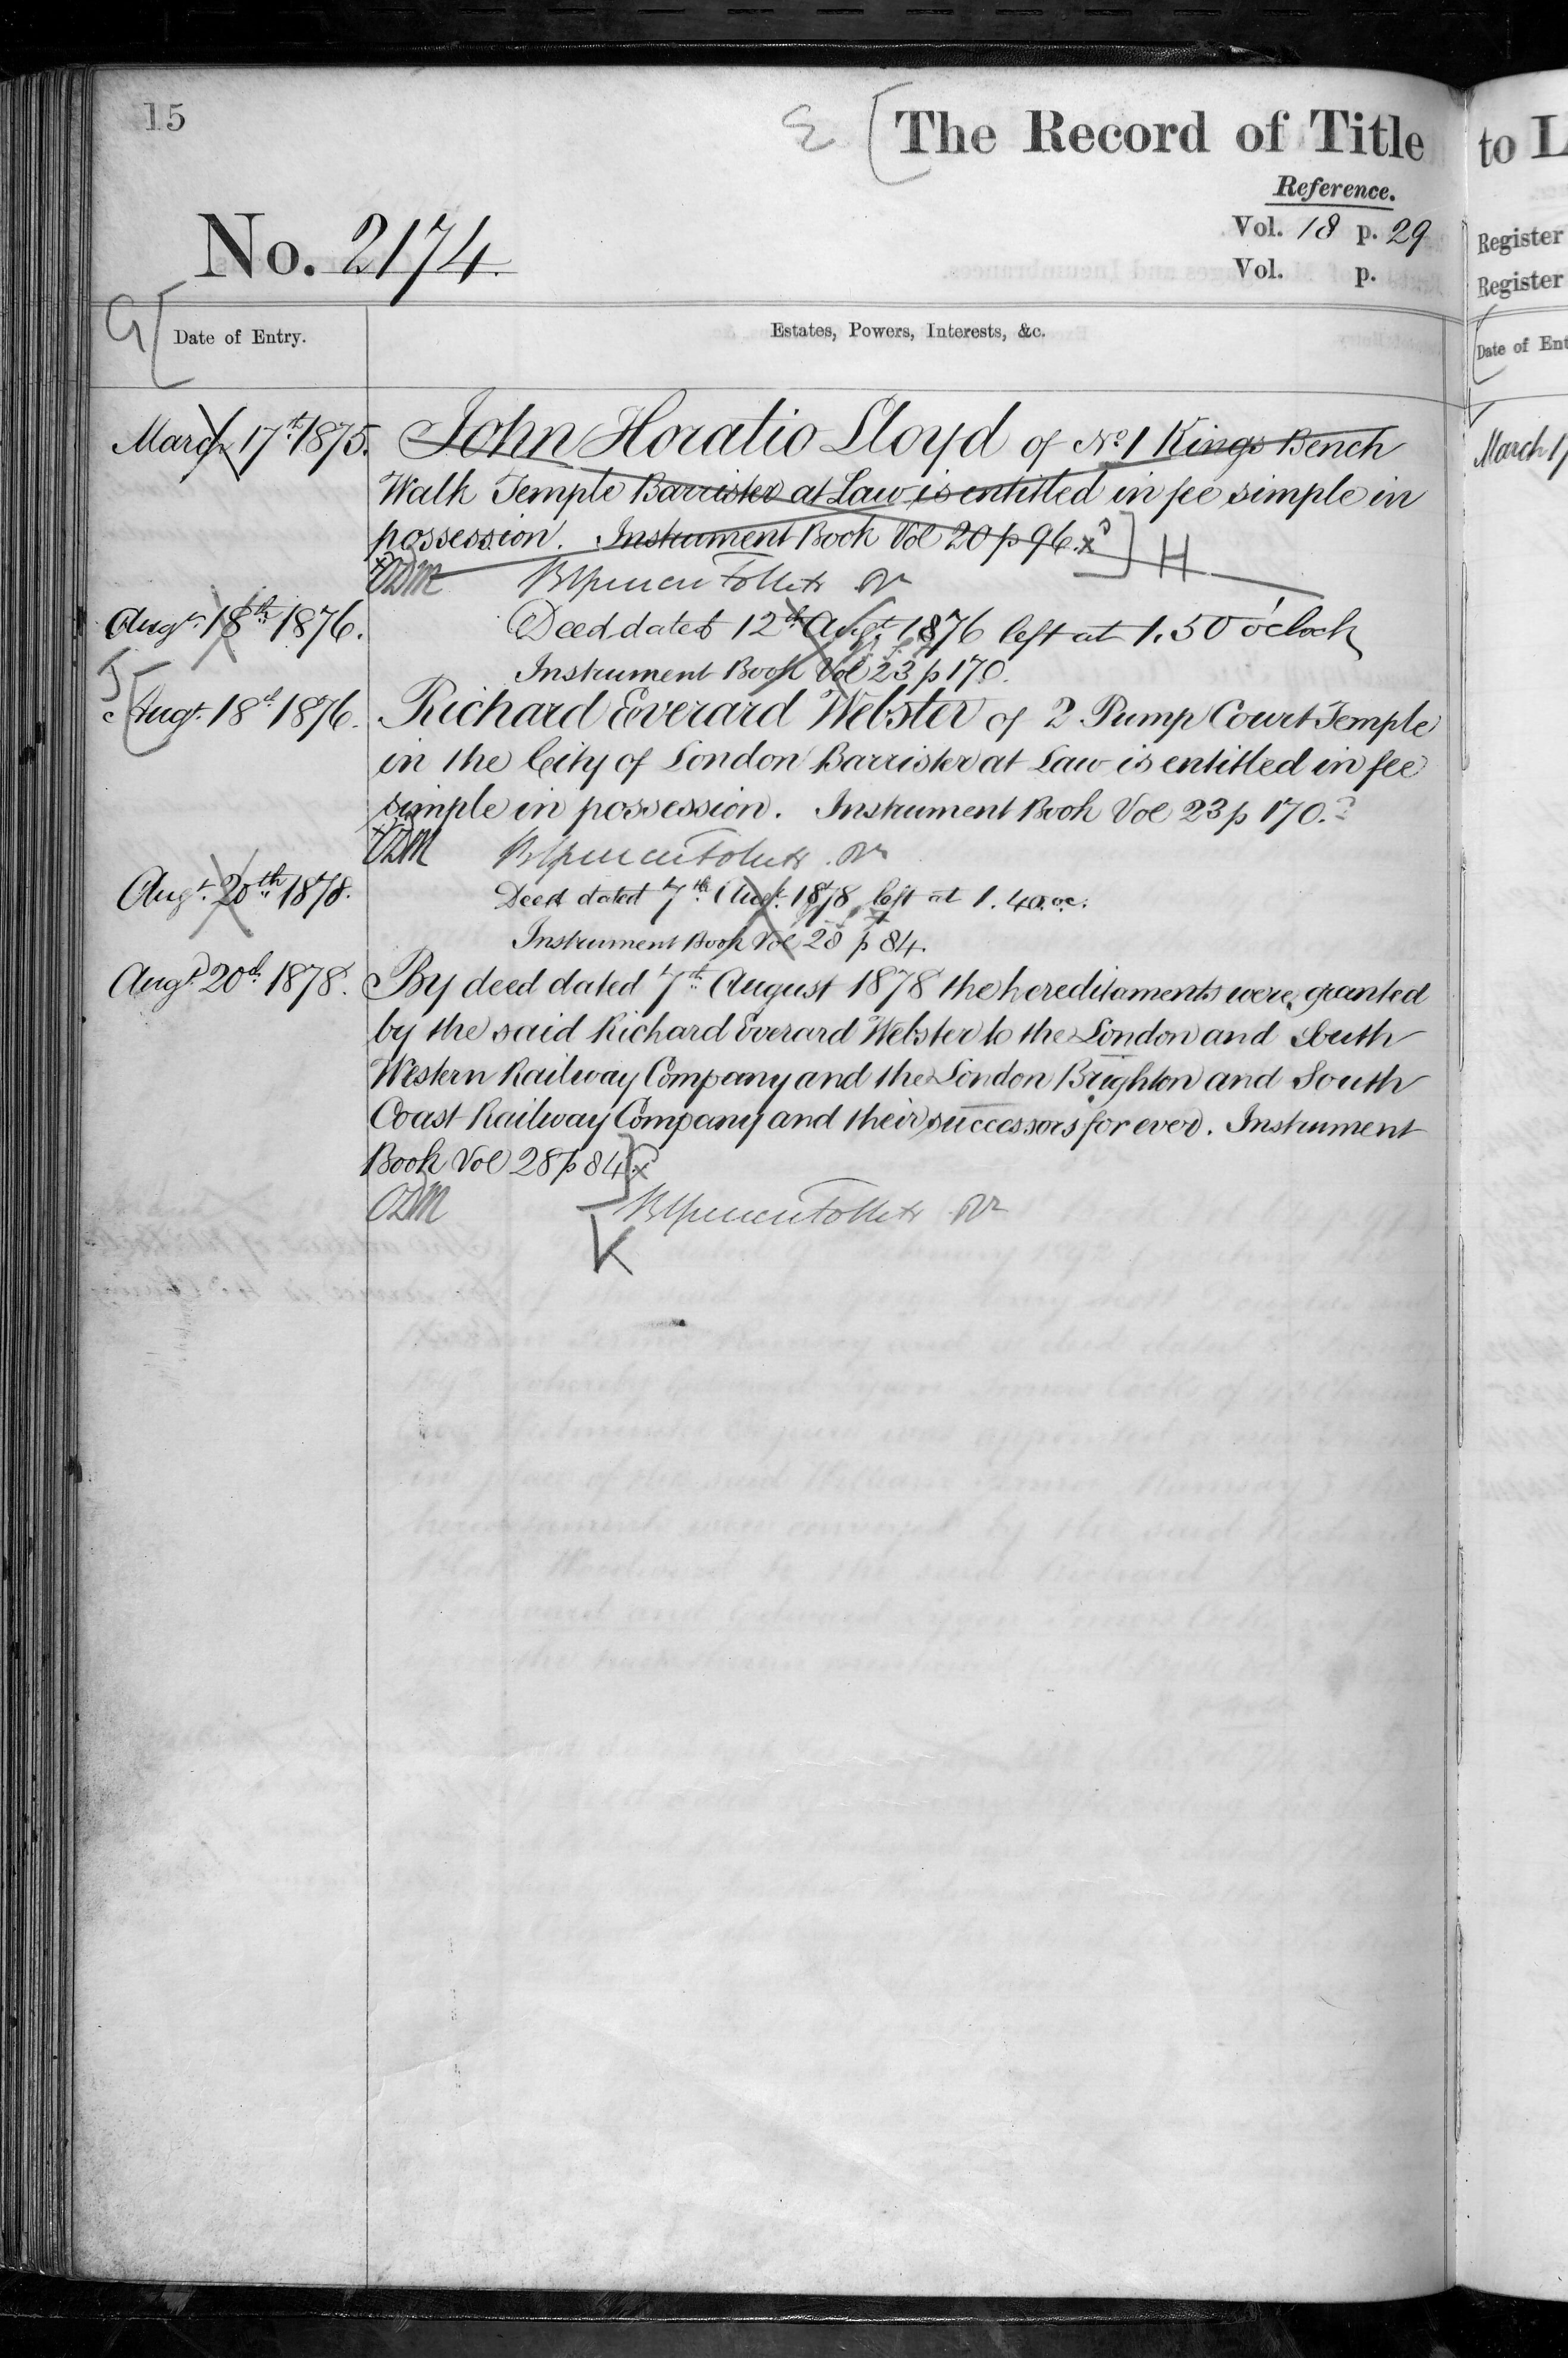 15
E [ The Record of Title
Reference.
No. 2174.
Vol. 18 p. 29
Vol. p.
G [ Date of Entry.
Estates, Powers, Interests, &c.
March 17th 1875. John Horatio Lloyd of No 1 Kings Bench
Walk Temple Barrister at Law is entitled in fee simple in
possession. Instrument Book Vol 20 p 96. x ] H
Augt. 18th 1876. Deed dated 12th Augt. 1876 left at 1.50 o'clock
Instrument Book Vol 23 p 170.
J [ Augt. 18th 1876. Richard Everard Webster of 2 Pump Court Temple
in the City of London Barrister at Law is entitled in fee
simple in possession. Instrument Book Vol 23 p 170.
Augt. 20th 1878. Deed dated 7th Augt. 1878 left at 1.40 oc.
Instrument Book Vol 28 p 84.
Augt 20th 1878. By deed dated 7th August 1878 the hereditaments were granted
by the said Richard Everard Webster to the London and South
Western Railway Company and the London Brighton and South
Coast Railway Company and their successors for ever. Instrument
Book Vol 28 p 84. x ]
K
to L
Register
Register
Date of Ent
March 17